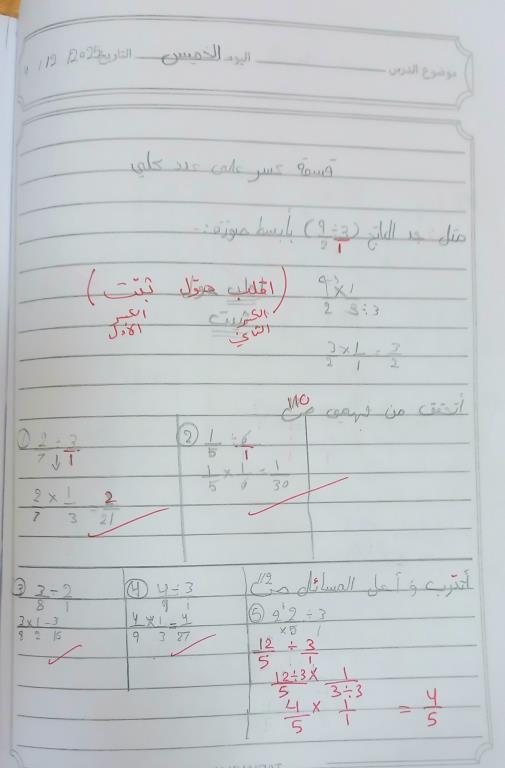 موضوع الدرس اليوم الخميس التاريخ 12/2025
قسمة كسر على عدد كلي
مثال: جد الناتج (9/2 ÷ 3/1) بأبسط صورة:-
9/2 × 1/3÷3
(ثبت حوّل اقلب)
الكسر الأول ثبت الكسر الثاني
3/2 × 1/1 = 3/2
أتحقق من فهمي ص110
① 2/7 ÷ 3/1
2/7 × 1/3 = 2/21
② 1/5 ÷ 6/1
1/5 × 1/6 = 1/30
أتدرب وأحل المسائل ص112
③ 3/8 ÷ 2/1
3/8 × 1/2 = 3/16
④ 4/9 ÷ 3/1
4/9 × 1/3 = 4/27
⑤ 2 2/5 ÷ 3
12/5 ÷ 3/1
12÷3/5 × 1/3÷3
4/5 × 1/1 = 4/5